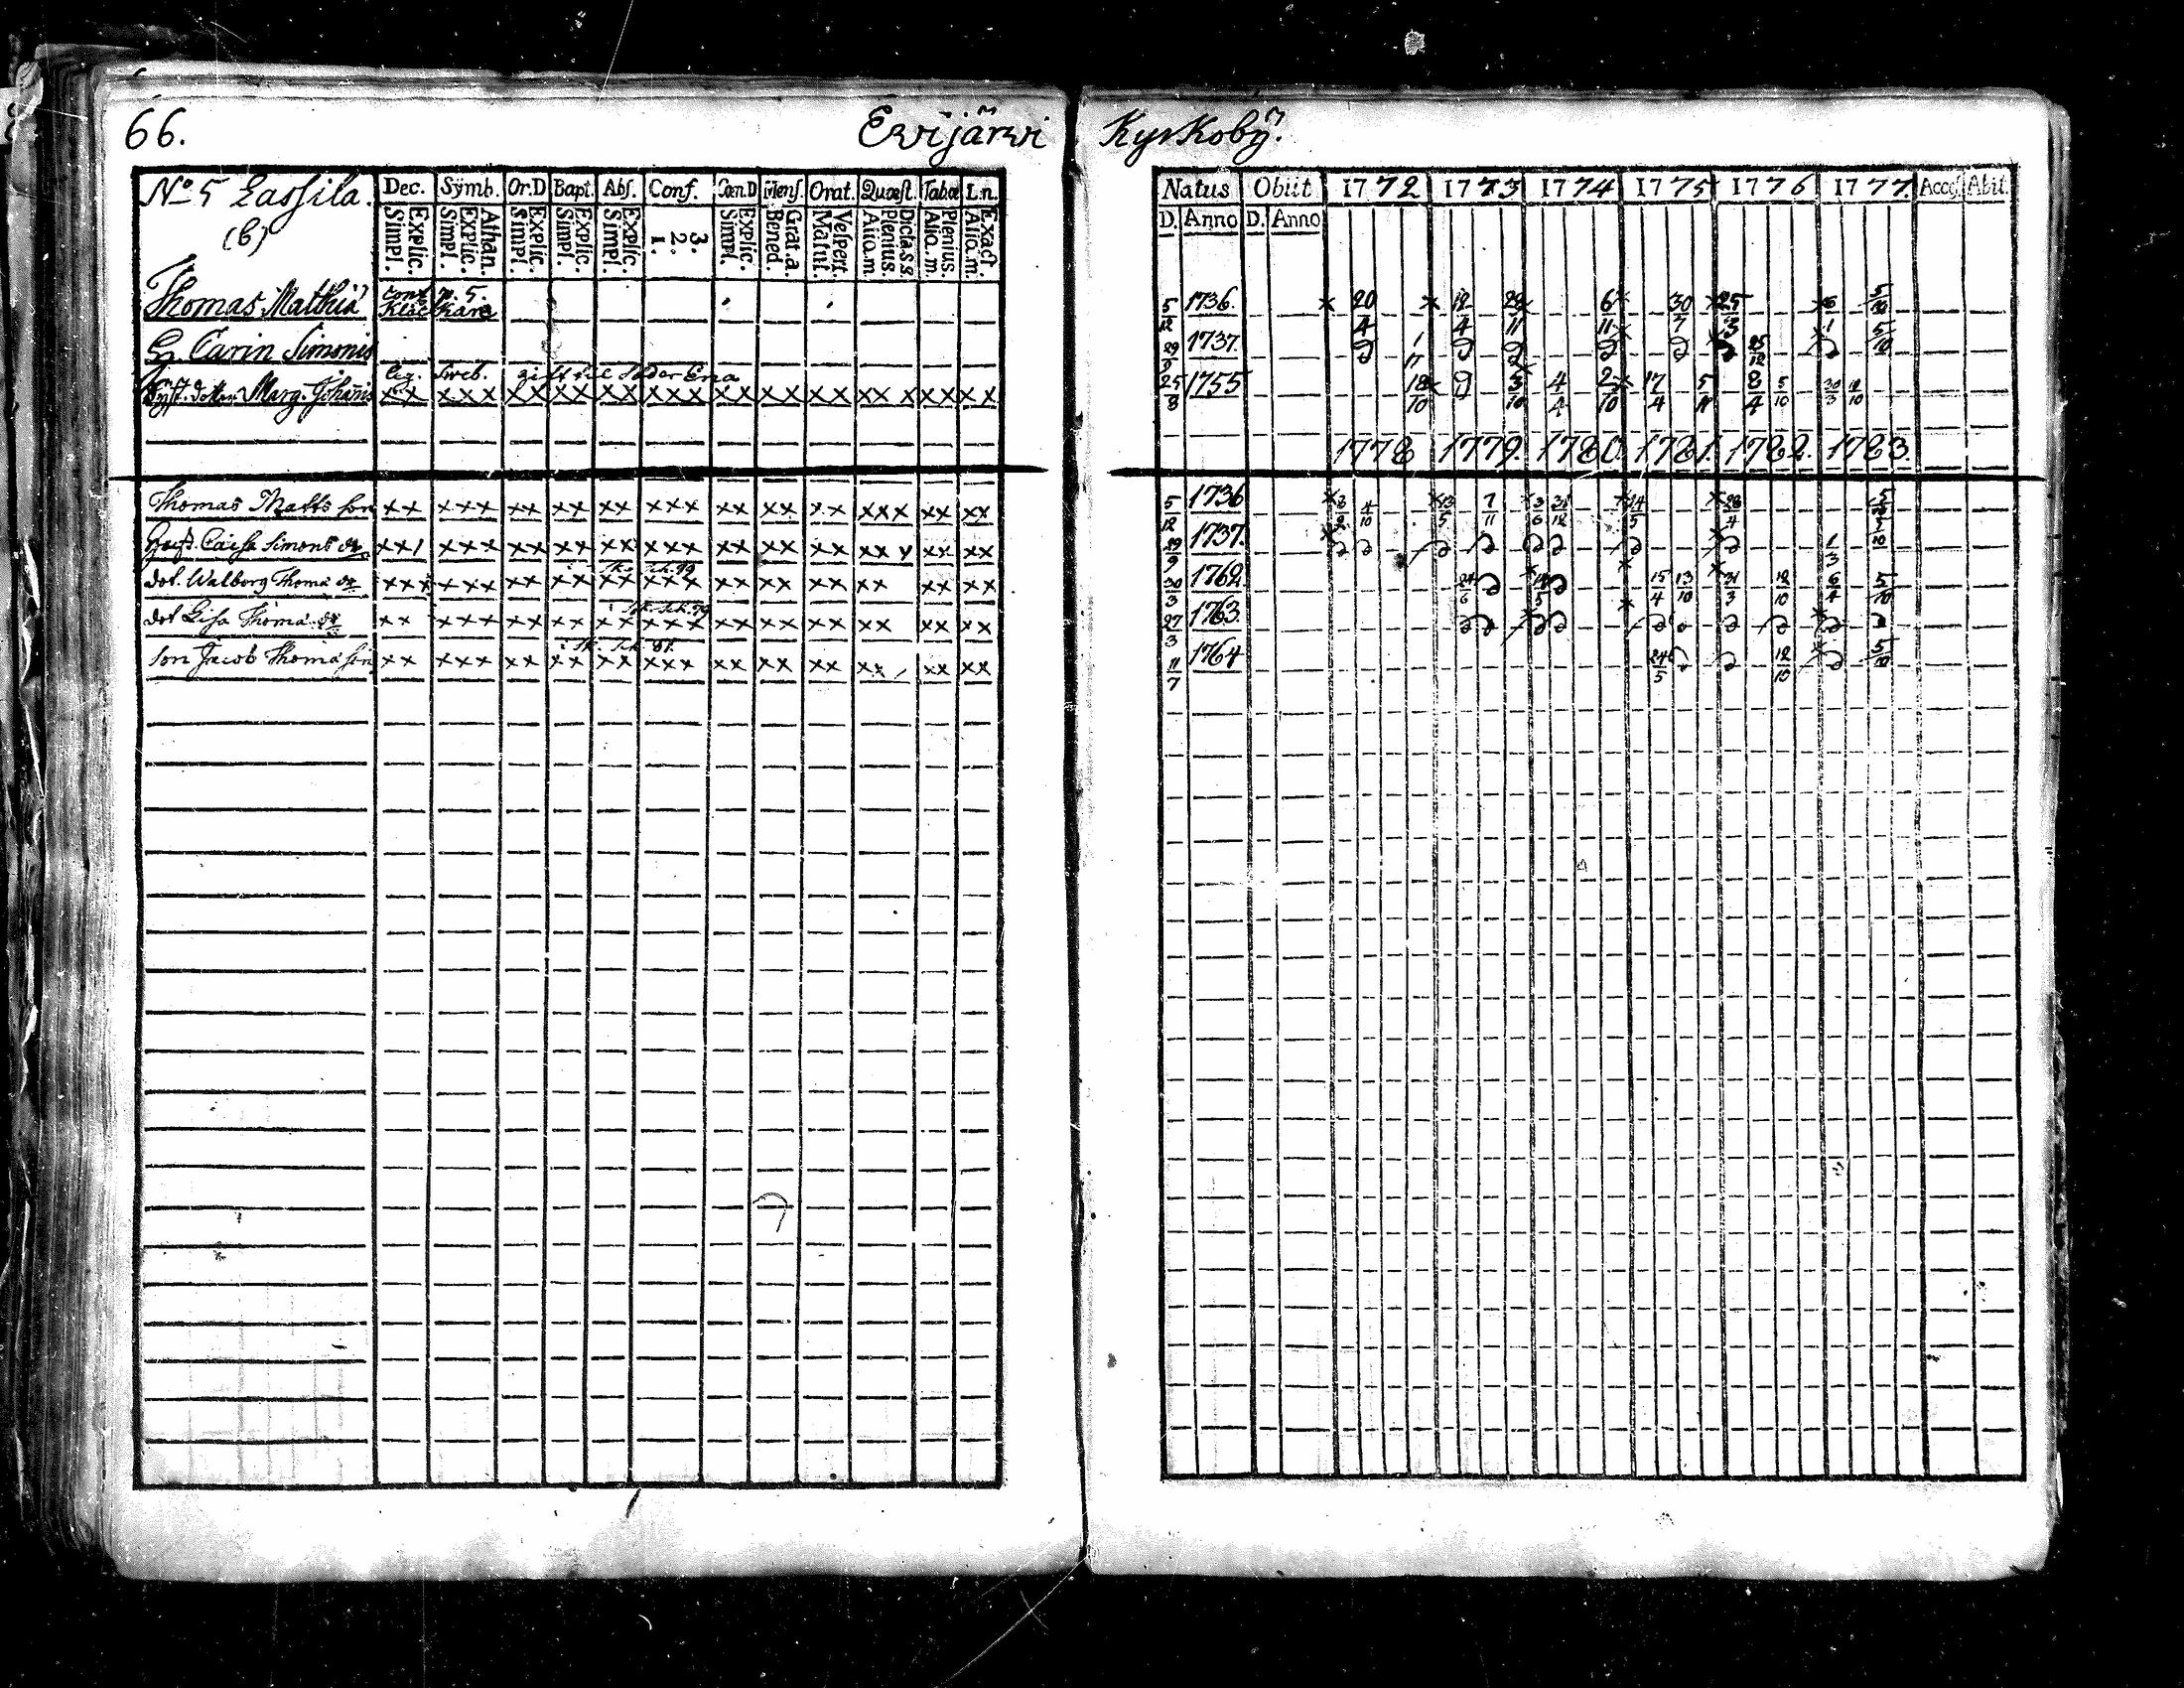 66. Ewijärwi Kyrkobÿ.
No 5 Lassila. Dec. Sÿmb. Or.D Bapt. Abs. Conf. Cœn.D Mens. Orat. Quæst. Tabæ L.n.
(b)
Explic. Simpl. Athan. Explic. Simpl. Explic. Simpl. Explic. Simpl. Explic. Simpl. 3. 2. 1. Explic. Simpl. Grat.a. Bened. Vespert. Matut. Dicta.s.s. Plenius. Alio.m. Plenius. Alio.m. Exact. Alio.m.
Thomas Matthiæ
H. Carin Simonis
leg. Sweb. gift til Söder Ena
Syst. dotter Marg. Johanis xx xxx xx xx xx xxx xx xx xx xx x xx xx
Thomas Matts son xx xxx xx xx xx xxx xx xx xx xxx xx xx
Hust. Caisa Simons dr xx xxx xx xx xx xxx xx xx xx xx xx xx
dot. Walborg Thomæ dr xxx xxx xx xx xx xxx xx xx xx xx xx xx
dot Lisa Thomæ dr xx xxx xx xx xx xxx xx xx xx xx xx xx
son Jacob Thomæ son xx xxx xx xx xx xxx xx xx xx xx xx xx
Natus Obiit 1772 1773 1774 1775 1776 1777. Access. Abit.
D. Anno D. Anno
5/12 1736. 20/4 12/4 29/11 6/11 30/7 25/3 5/10
29/9 1737. 25/12 5/10
25/8 1755 18/10 3/10 4/4 2/10 17/4 8/4 5/10 30/3 12/10
1778 1779. 1780. 1781. 1782. 1783.
5/12 1736 4/10 13/5 7/11 3/6 31/12 14/5 28/4
29/9 1737. 1/3
30/3 1762. 24/6 15/4 13/10 31/3 12/10 6/4 5/10
27/3 1763.
11/7 1764 24/5 12/10 5/10